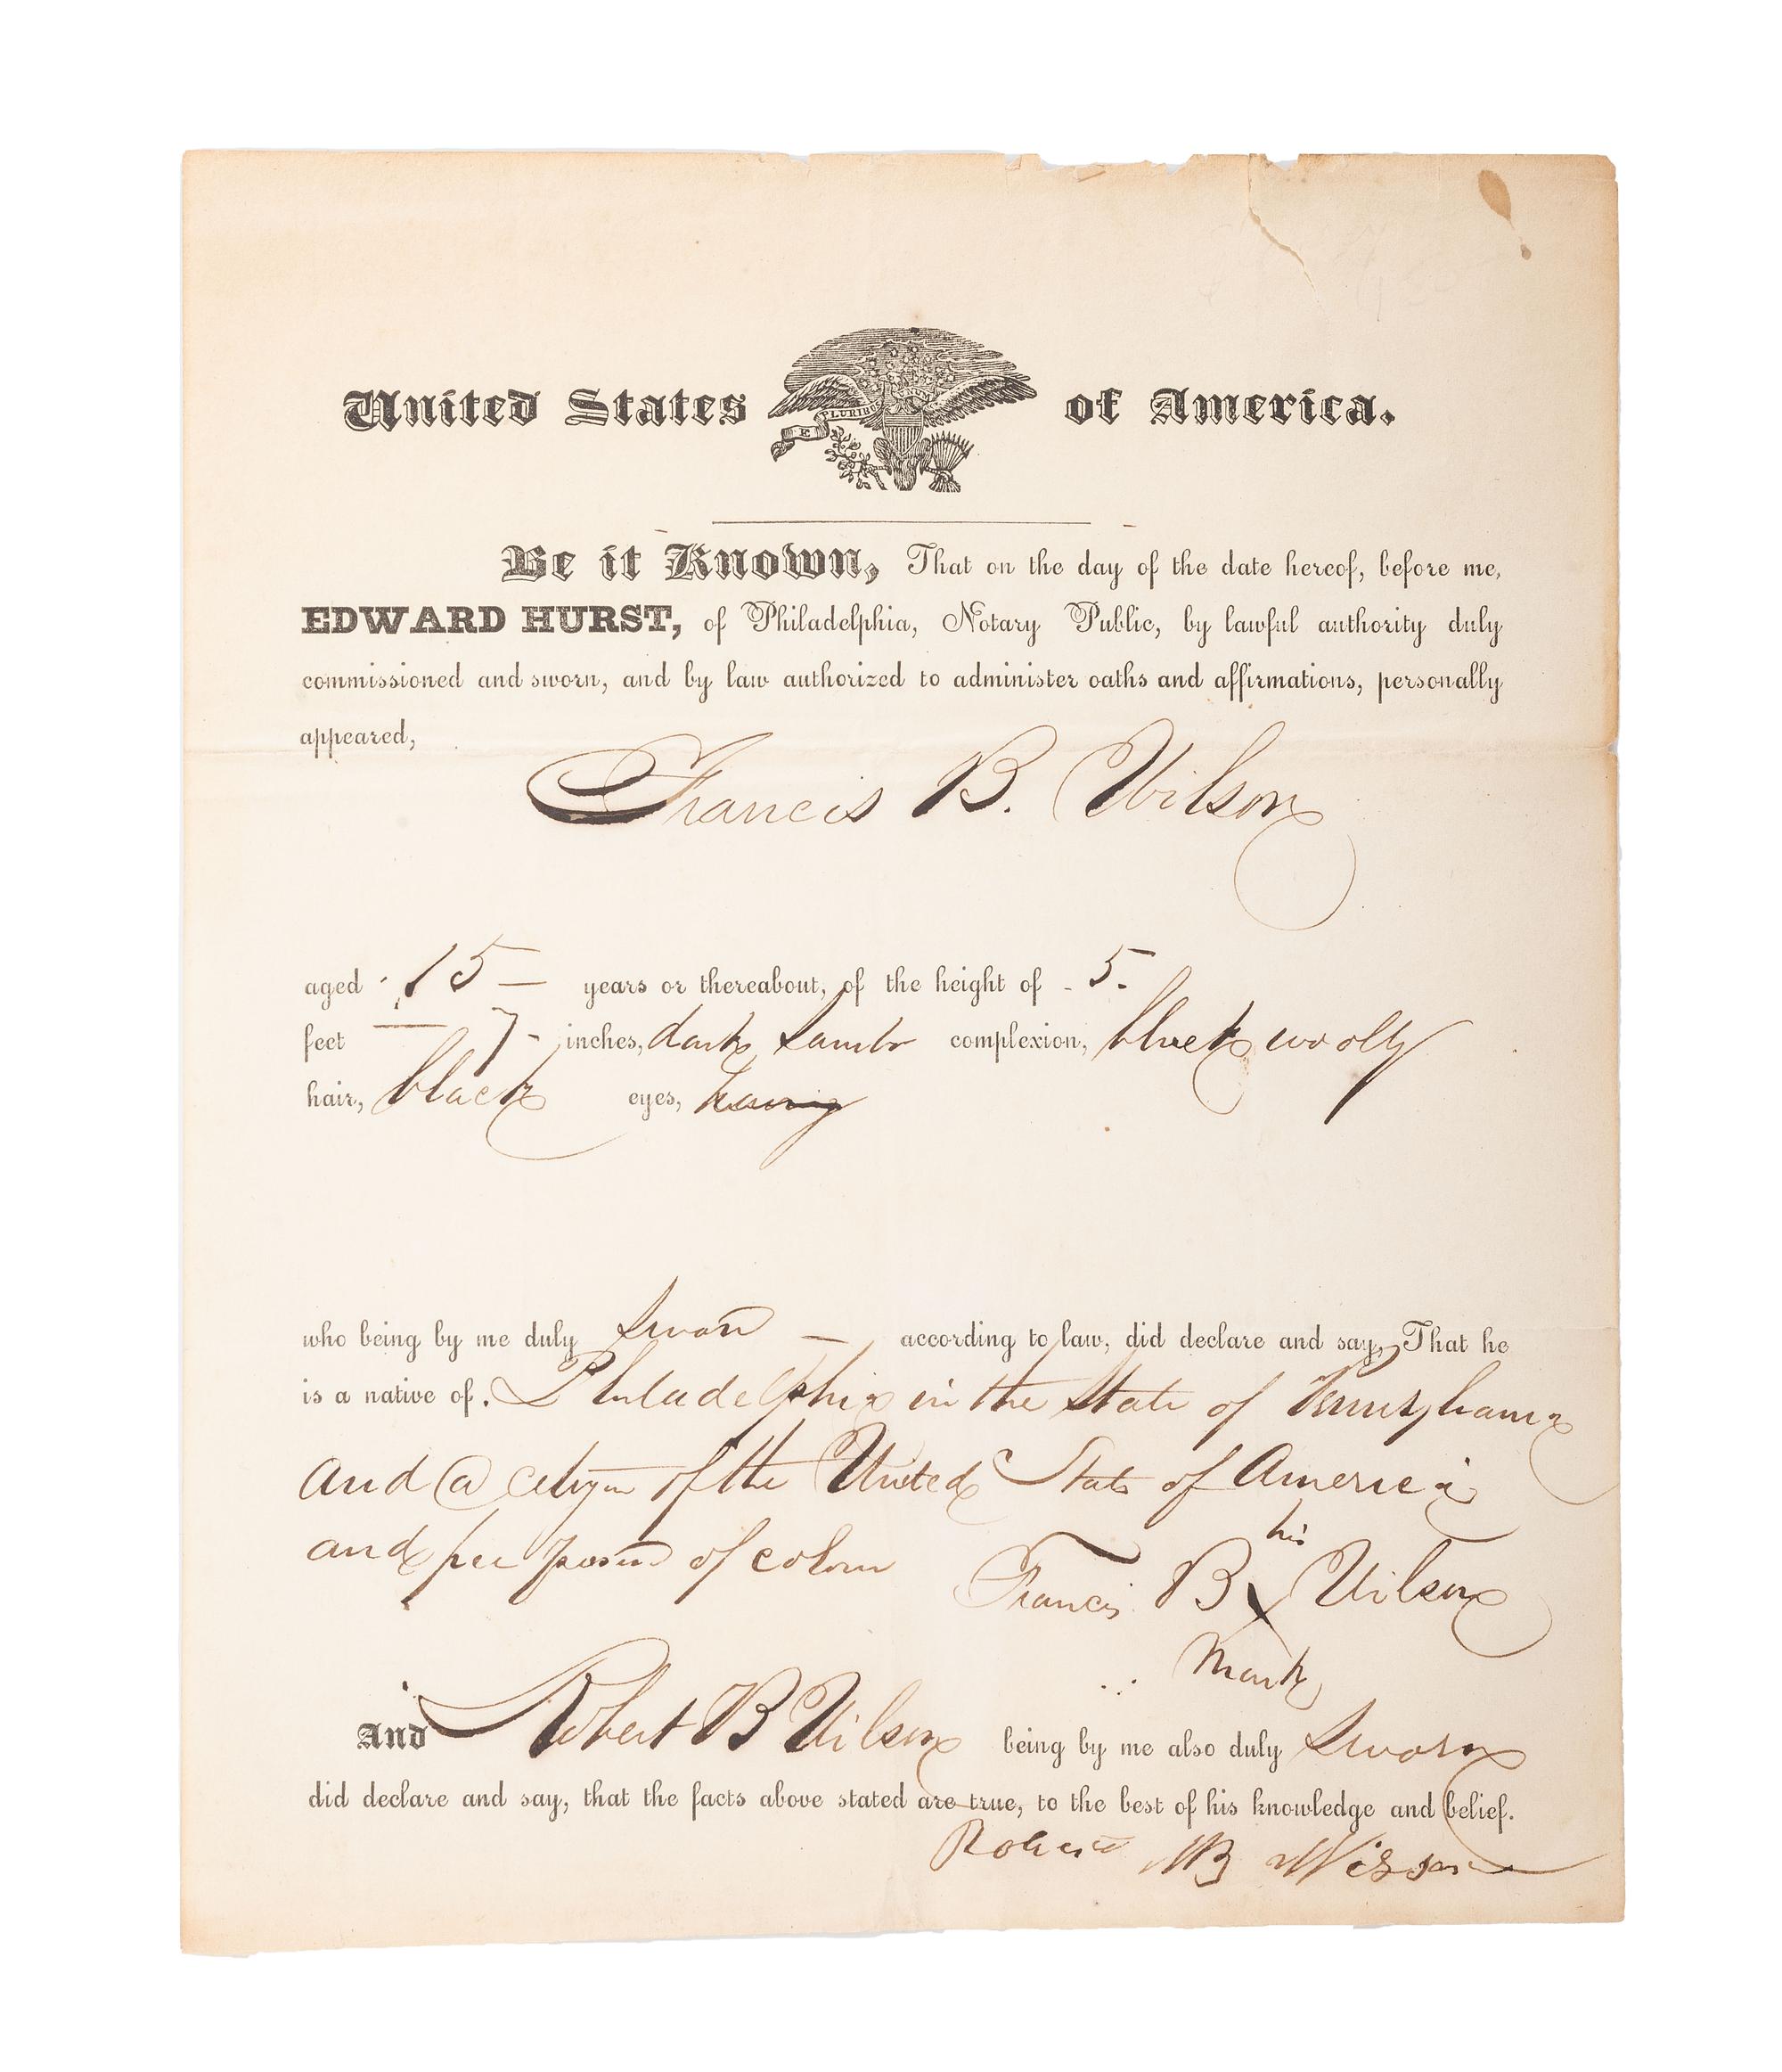 United States of America.
E PLURIBUS UNUM
Be it Known, That on the day of the date hereof, before me,
EDWARD HURST, of Philadelphia, Notary Public, by lawful authority duly
commissioned and sworn, and by law authorized to administer oaths and affirmations, personally
appeared,
Francis B. Wilson
aged 15 — years or thereabout, of the height of 5.
feet — 7 - inches, dark Sambo complexion, black woolly
hair, black eyes, having
who being by me duly sworn — according to law, did declare and say, That he
is a native of Philadelphia in the State of Pennsylvania
and a citizen of the United States of America
and free person of colour
his
Francis B X Wilson
mark
And Robert B Wilson being by me also duly sworn
did declare and say, that the facts above stated are true, to the best of his knowledge and belief.
Robert B